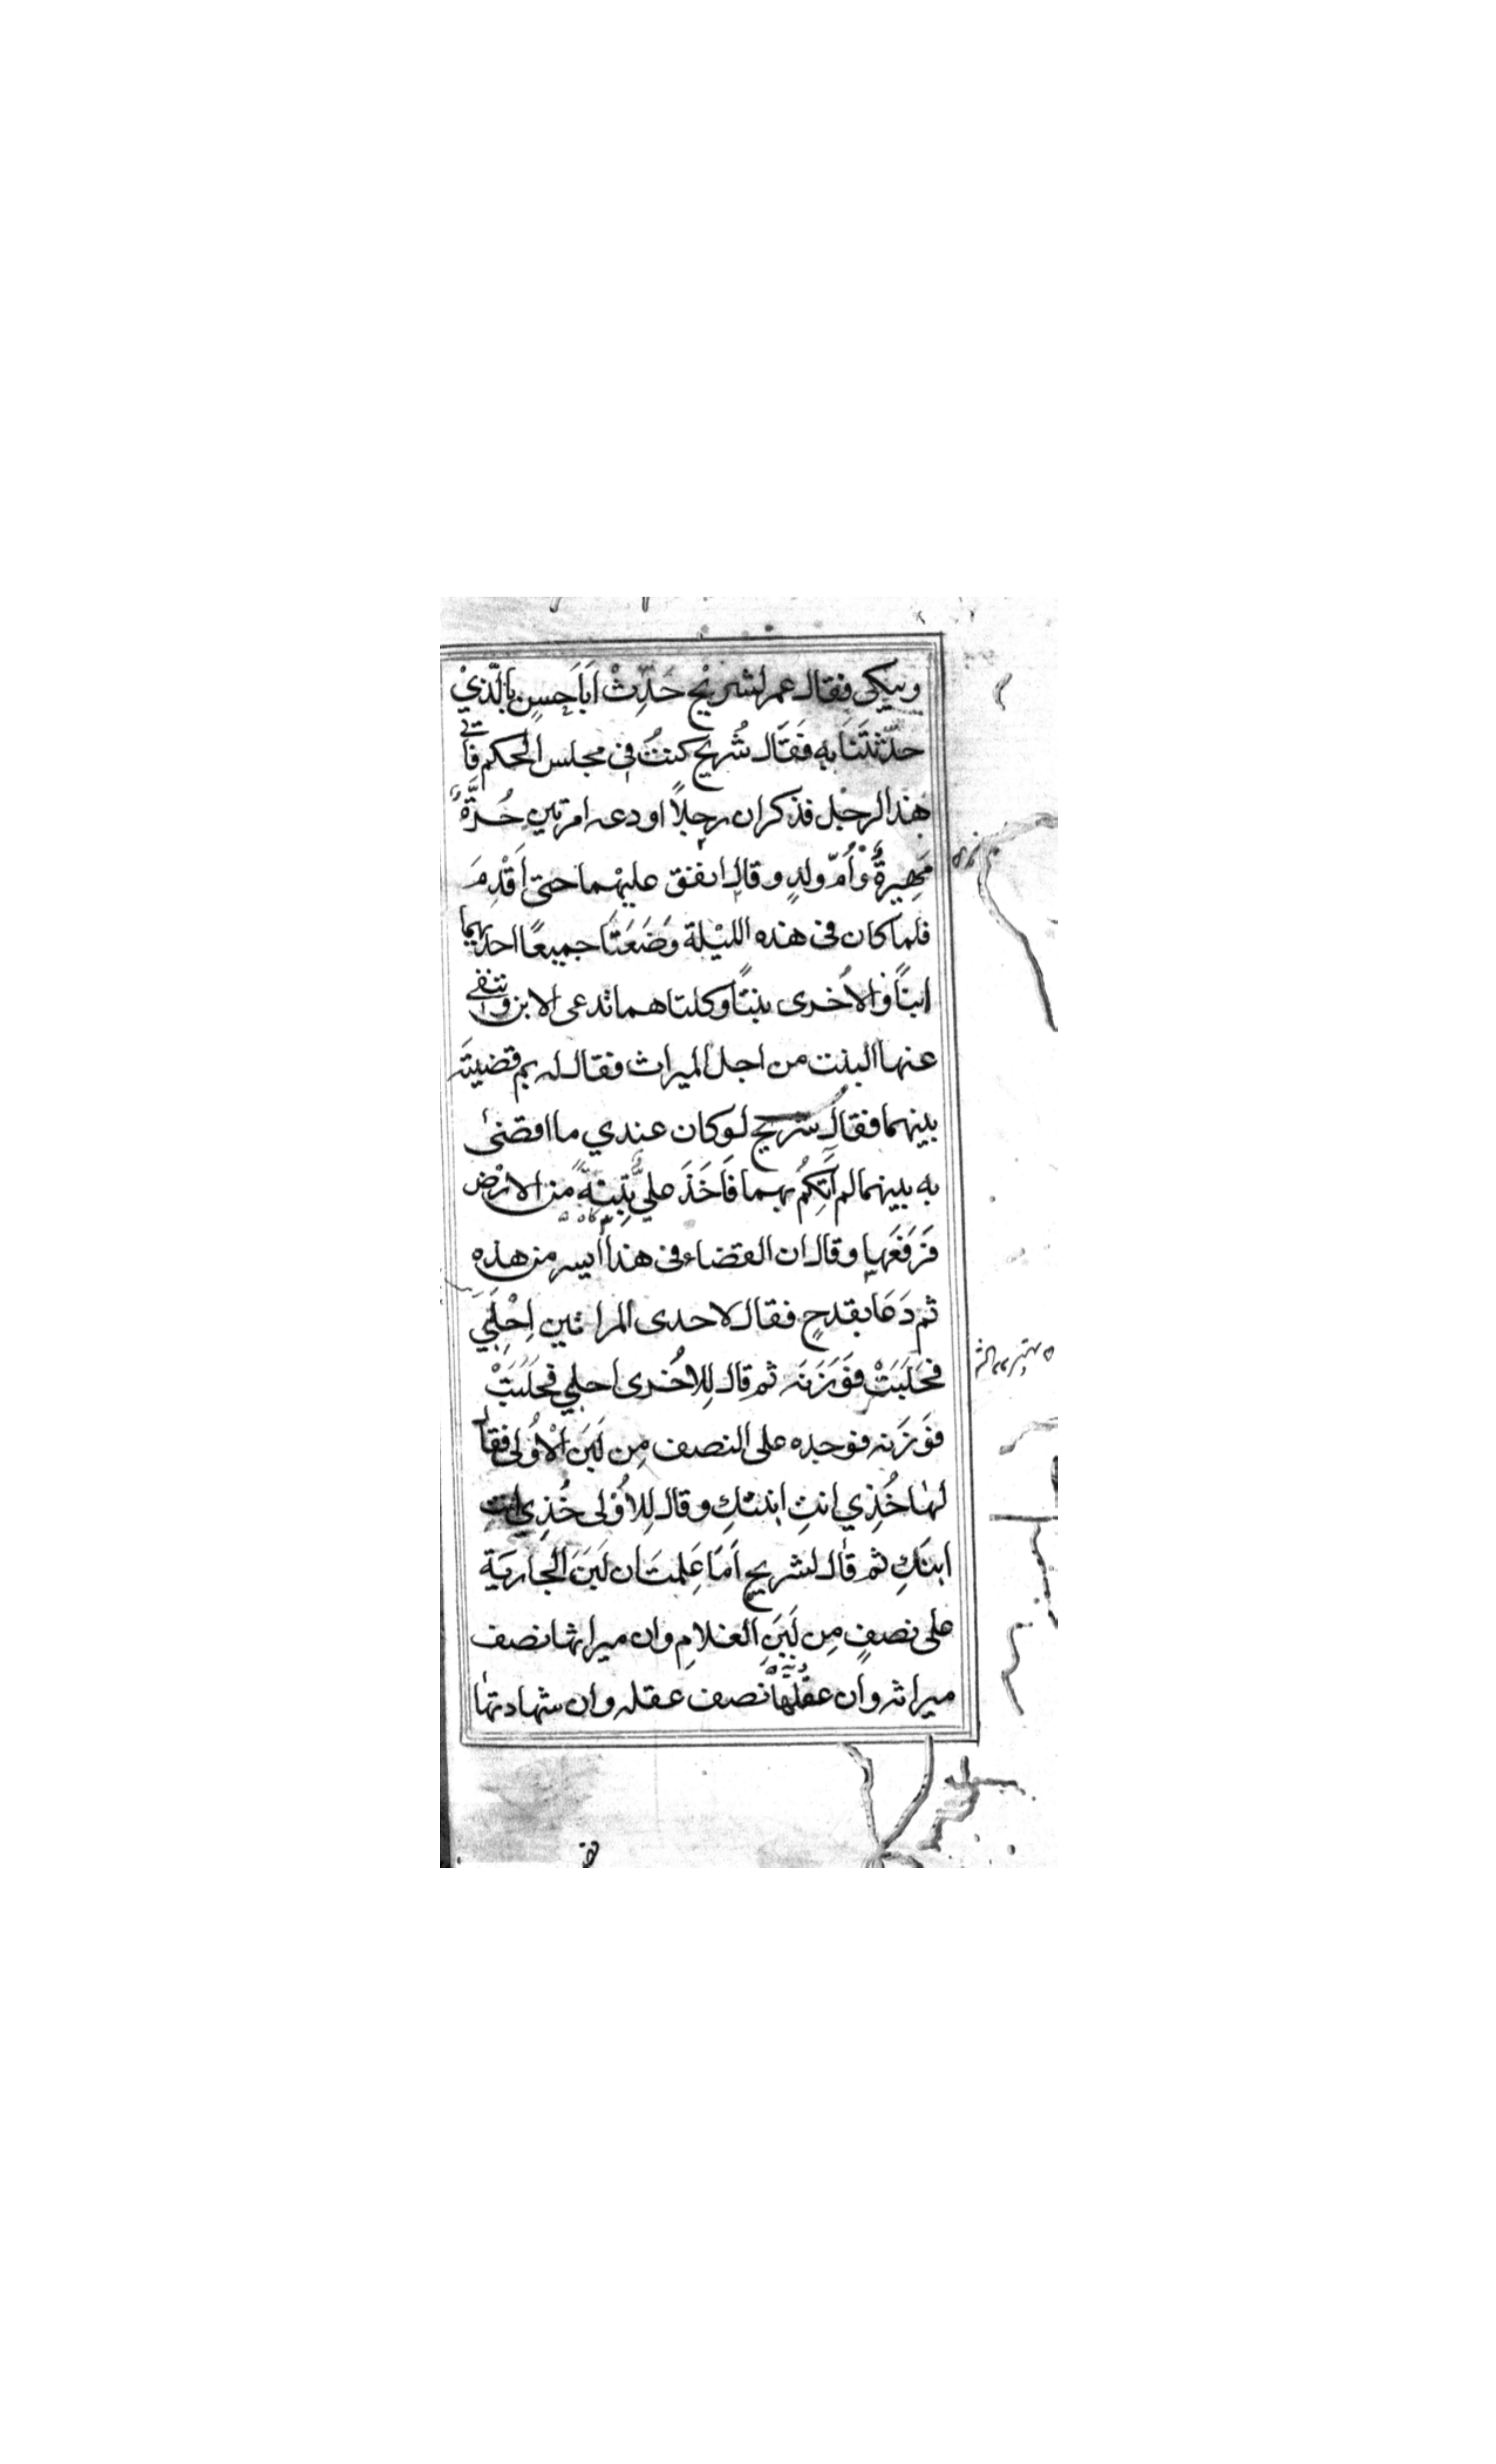 ويبكي فقال عمر لشريْح حَدِّثْ اَبَا حَسنٍ بِالَّذيْ
حدّثتَنَا بِهِ فَقَال شُريح كنتُ في مجلس الحكم فَاَتٰى
هٰذا الرجُل فذكر ان رجلاً اودعه امرتينِ حُرَّةً
مَهِيرةً وَأُمّ ولدٍ وقال انفق عليْهما حتى اَقْدِمَ
فلما كان في هذه الليْلة وَضَعَتَا جميعًا احدٰيهما
ابنًا والاُخرى بنتًا وكلتاهما تدعى الابن وتنتفي
عنها البنت من اجل الميراث فقال له بم قضيتَ
بينهما فقال شريح لو كان عندي ما اقضيٰ
به بينهما لم اٰتِكُمْ بهما فَاَخَذَ عليٌّ تِبنةً من الارْض
فَرَفَعَهَا وقال ان القضاء في هذا ايسر من هذه
ثم دَعَا بقدحٍ فقال لاحدى المراتين اِحْلِبِيْ
فحَلَبَتْ فَوَزَنَه ثم قال لِلاُخرى احلبي فحَلَبَتْ
فَوَزَنه فوجده على النصف مِن لَبَنِ الْاُولى فقال
لهَا خُذِي انتِ ابنتكِ وقال لِلاُوْلى خُذِي انتِ
ابنَكِ ثم قال لشريح اَمَا عَلِمتَ ان لَبَنَ الجاريَة
على نصفٍ مِن لَبَنِ الغلامِ وان ميراثها نصف
ميراثه وان عقْلَهَا نصف عقله وان شهادتهَا